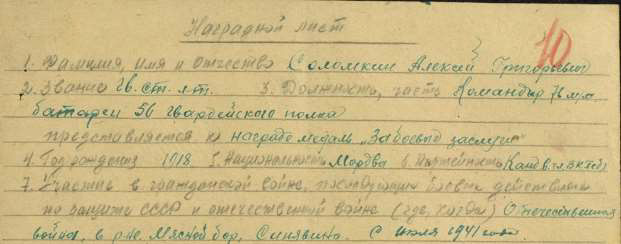 Наградной лист
10
1. Фамилия, имя и отчество Соломкин Алексей Григорьевич
2. Звание Гв. ст. л-т. 3. Должность, часть Командир 76 мм
батареи 56 гвардейского полка
представляется к награде медаль "За боевые заслуги"
4. Год рождения 1918 5. Национальность Мордва 6. Партийность Канд. ВКП(б)
7. Участие в гражданской войне, последующих боевых действиях
по защите СССР и отечественной войне (где, когда) Отечественная
война, в р-не Мясной бор, Синявино. С июля 1941 года